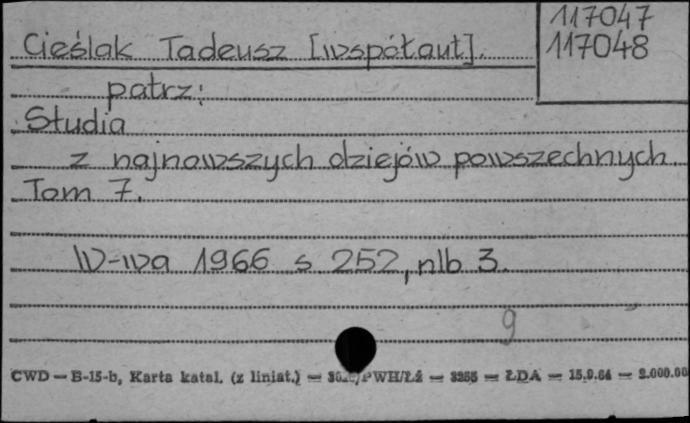 117047
Cieślak Tadeusz [współaut]. 117048
patrz:
Studia
z najnowszych dziejów powszechnych
Tom 7.
W-wa 1966 s 252, nlb 3.
9
CWD — B-15-b, Karta katal. (z liniat.) — PWH/Łź — 3255 — ŁDA — 15.9.64 — 2.000.00